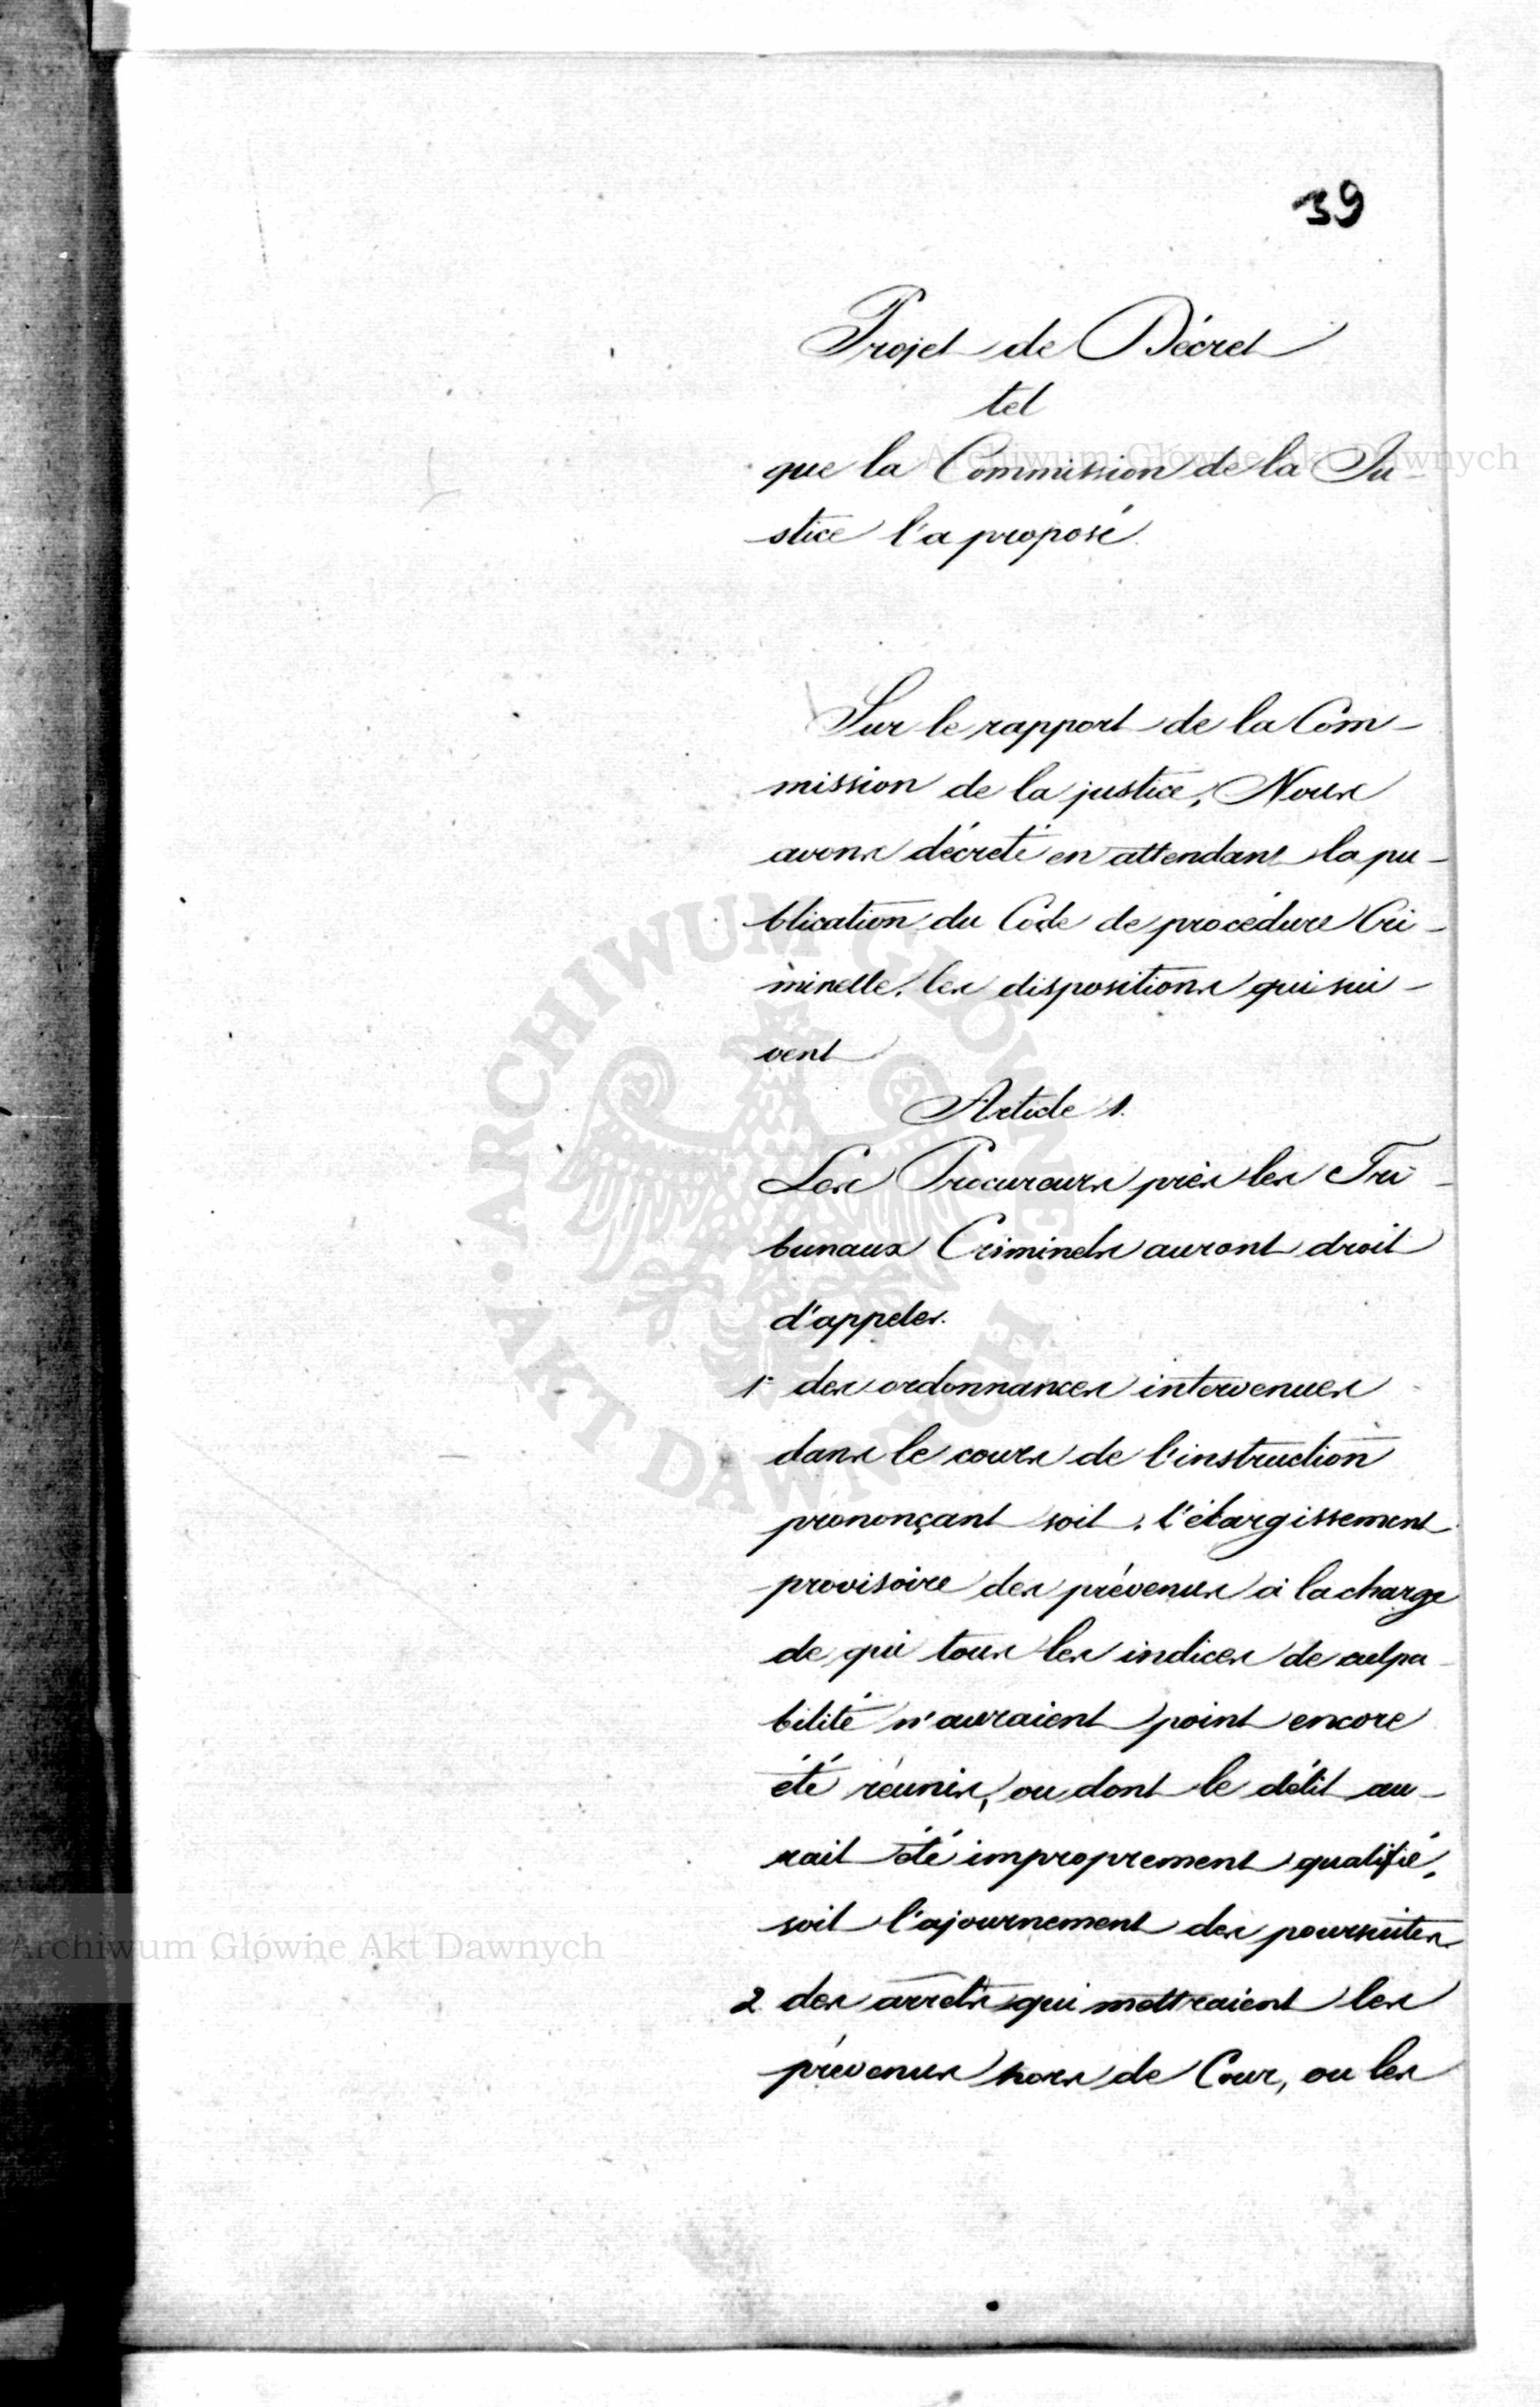 39
Projet de Décret
tel
que la Commission de la Ju-
stice l'a proposé.
Sur le rapport de la Com-
mission de la justice, Nous
avons décreté en attendant la pu-
blication du Code de procédure Cri-
minelle, les dispositions qui sui-
vent
Article 1.
Les Procureurs près les Tri-
bunaux Criminels auront droit
d'appeler.
1° des ordonnances intervenues
dans le cours de l'instruction
prononçant soit, l'élargissement
provisoire des prévenus à la charge
de qui tous les indices de culpa-
bilité n'auraient point encore
été réunis, ou dont le délit au-
rait été improprement qualifié,
soit l'ajournement des poursuites
2 des arrêts qui mettraient les
prévenus hors de Cour, ou les
Archiwum Główne Akt Dawnych
Archiwum Główne Akt Dawnych
ARCHIWUM GŁÓWNE · AKT DAWNYCH ·